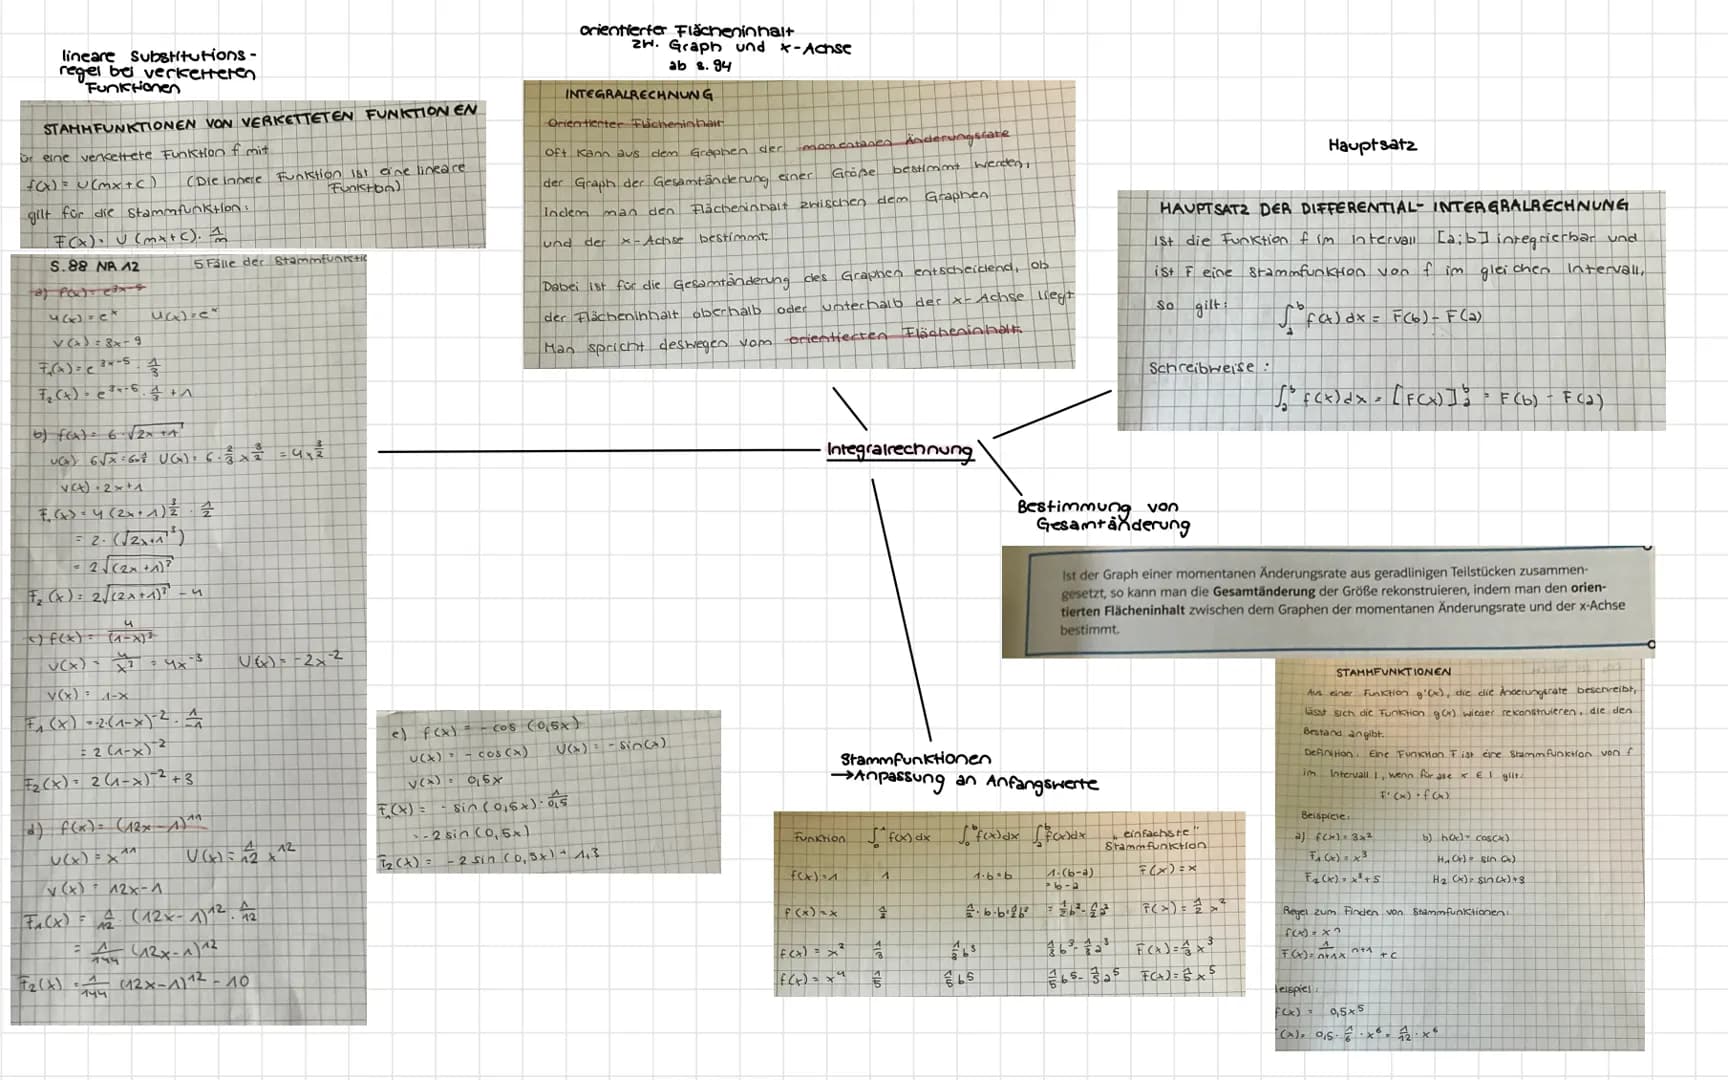 lineare Substitutions-
regel bei verketteten
Funktionen
STAMMFUNKTIONEN VON VERKETTETEN FUNKTIONEN
ür eine verkettete Funktion f mit
f(x) = u(mx+c) (Die innere Funktion ist eine lineare
Funktion)
gilt für die Stammfunktion:
F(x) = U(mx+c) · 1/m
S.88 NR 12 5 Fälle der Stammfunktio
u(x) = e^x U(x) = e^x
v(x) = 3x-9
F₁(x) = e^3x-5 · 1/3
F₂(x) = e^3x-5 · 1/3 + 1
b) f(x) = 6·√2x+1
v(x) = 2x+1
F₁(x) = 4(2x+1)^3/2 · 1/2
= 2·(√2x+1³)
= 2√(2x+1)³
F₂(x) = 2√(2x+1)³ - 4
c) f(x) = 4/(1-x)³
u(x) = 4/x³ = 4x^-3 U(x) = -2x^-2
v(x) = 1-x
F₁(x) = -2·(1-x)^-2 · 1/-1
= 2(1-x)^-2
F₂(x) = 2(1-x)^-2 + 3
d) f(x) = (12x-1)^11
u(x) = x^11 U(x) = 1/12 x^12
v(x) = 12x-1
F₁(x) = 1/12 · (12x-1)^12 · 1/12
= 1/144 (12x-1)^12
F₂(x) = 1/144 (12x-1)^12 - 10
e) f(x) = -cos(0,5x)
u(x) = -cos(x) U(x) = -sin(x)
v(x) = 0,5x
F₁(x) = -sin(0,5x) · 1/0,5
= -2 sin(0,5x)
F₂(x) = -2 sin(0,5x) + 1,3
orientierter Flächeninhalt
zw. Graph und x-Achse
ab s. 94
INTEGRALRECHNUNG
Orientierter Flächeninhalt
Oft kann aus dem Graphen der momentanen Änderungsrate
der Graph der Gesamtänderung einer Größe bestimmt werden,
indem man den Flächeninhalt zwischen dem Graphen
und der x-Achse bestimmt.
Dabei ist für die Gesamtänderung des Graphen entscheidend, ob
der Flächeninhalt oberhalb oder unterhalb der x-Achse liegt
Man spricht deswegen vom orientierten Flächeninhalt.
Integralrechnung
Hauptsatz
HAUPTSATZ DER DIFFERENTIAL- INTERGRALRECHNUNG
Ist die Funktion f im Intervall [a;b] integrierbar und
ist F eine Stammfunktion von f im gleichen Intervall,
so gilt: ∫ₐᵇ f(x) dx = F(b) - F(a)
Schreibweise:
∫ₐᵇ f(x) dx = [F(x)]ₐᵇ = F(b) - F(a)
Bestimmung von
Gesamtänderung
Ist der Graph einer momentanen Änderungsrate aus geradlinigen Teilstücken zusammen-
gesetzt, so kann man die Gesamtänderung der Größe rekonstruieren, indem man den orien-
tierten Flächeninhalt zwischen dem Graphen der momentanen Änderungsrate und der x-Achse
bestimmt.
Stammfunktionen
→Anpassung an Anfangswerte
Funktion ∫₀¹ f(x) dx ∫₀ᵇ f(x) dx ∫ₐᵇ f(x) dx „einfachste"
Stammfunktion
f(x) = 1 1 1·b = b 1·(b-a) F(x) = x
= b-a
f(x) = x 1/2 1/2·b·b = 1/2b² = 1/2b² - 1/2a² F(x) = 1/2 x²
f(x) = x² 1/3 1/3 b³ 1/3 b³ - 1/3 a³ F(x) = 1/3 x³
f(x) = x⁴ 1/5 1/5 b⁵ 1/5 b⁵ - 1/5 a⁵ F(x) = 1/5 x⁵
STAMMFUNKTIONEN
Aus einer Funktion g'(x), die die Änderungsrate beschreibt,
lässt sich die Funktion g(x) wieder rekonstruieren, die den
Bestand angibt.
Definition: Eine Funktion F ist eine Stammfunktion von f
im Intervall I, wenn für alle x ∈ I gilt:
F'(x) = f(x)
Beispiele:
a) f(x) = 3x² b) h(x) = cos(x)
F₁(x) = x³ H₁(x) = sin(x)
F₂(x) = x³+5 H₂(x) = sin(x)+3
Regel zum Finden von Stammfunktionen:
f(x) = x^n
F(x) = 1/n+1 x^n+1 + c
eispiel:
f(x) = 0,5x⁵
(x) = 0,5 · 1/6 · x⁶ = 1/12 · x⁶